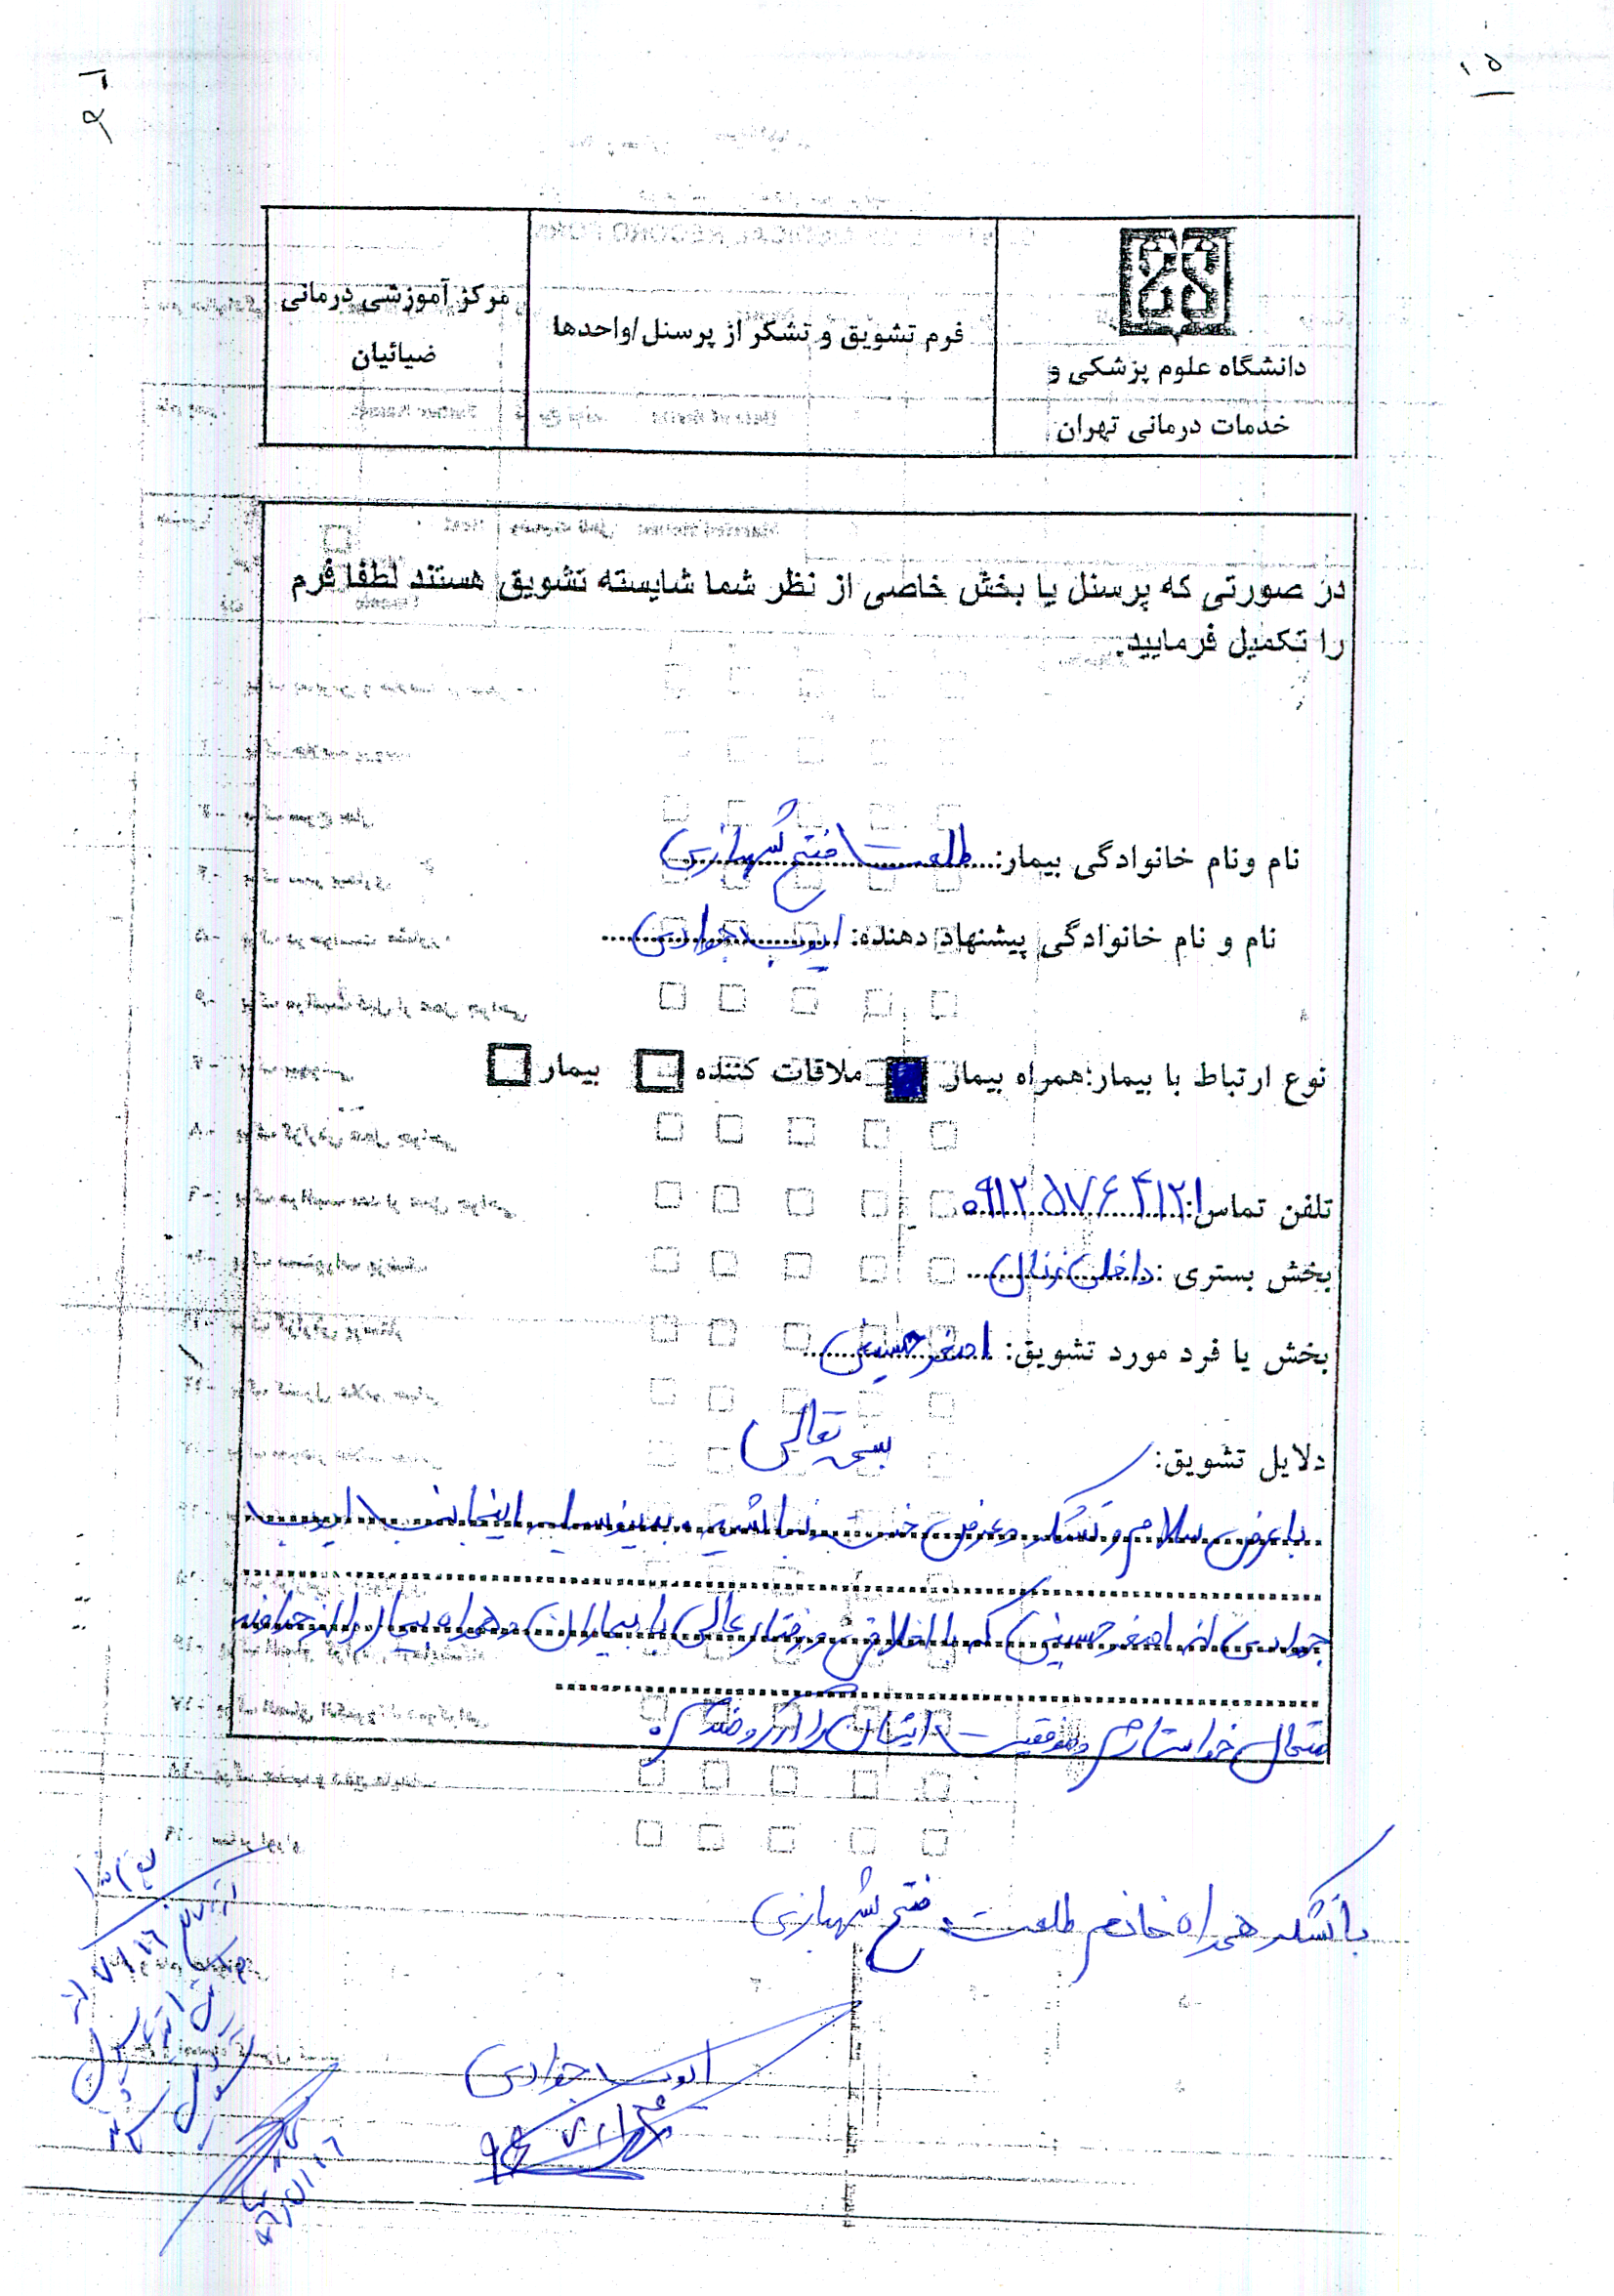 ۱۵
دانشگاه علوم پزشکی و
خدمات درمانی تهران
فرم تشویق و تشکر از پرسنل/واحدها
مرکز آموزشی درمانی
ضیائیان
در صورتی که پرسنل یا بخش خاصی از نظر شما شایسته تشویق هستند لطفا فرم
را تکمیل فرمایید.
نام ونام خانوادگی بیمار: طلعت فتح شهبازی
نام و نام خانوادگی پیشنهاد دهنده: ایوب جوادی
نوع ارتباط با بیمار: همراه بیمار ملاقات کننده بیمار
تلفن تماس: ۰۹۱۲۵۷۶۴۱۲۱
بخش بستری: داخلی زنان
بخش یا فرد مورد تشویق: اصغر حسینی
دلایل تشویق:
بسمه تعالی
با عرض سلام و تشکر و عرض خسته نباشید. بدینوسیله اینجانب ایوب
جوادی از اصغر حسینی که با اخلاق و رفتار عالی با بیماران و همراه بیمار را از خداوند
متعال خواستارم و موفقیت ایشان را آرزومندم.
با تشکر همراه خانم طلعت فتح شهبازی
ایوب جوادی